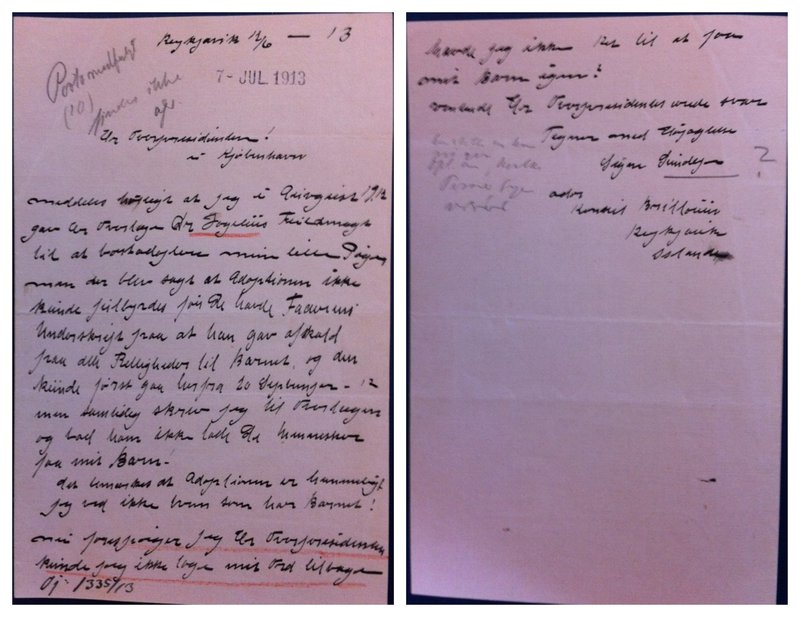 Reykjavik 12/6 — 13
Portomedfulgt
(10)
findes ikke
7- JUL. 1913
Hr Overpræsidenten!
i Kjøbenhavn
meddeles at jeg i 1912
gav Hr Overlæge Dr Vogelius Fuldmagt
til at bortadoptere min lille Pige
man der blev sagt at Adoptionen ikke
kunde fuldbyrdes før De havde Faderens
Underskrift paa at han gav afkald
paa alle Rettigheder til Barnet, og den
kunde først gaa herfra 20 September - 12
man samtidig skrev jeg til Overlægen
og bad ham ikke lade De Mennesker
faa mit Barn!
det bemærkes at Adoptionen er hemmeligt
jeg ved ikke hvem som har Barnet!
nu forespørger jeg Hr Overpræsidenten
kunde jeg ikke tage mit Ord tilbage
Oj- 1335/13
havde jeg ikke Ret til at faa
mit Barn igen?
ventende Hr Overpræsidentens svar
Tegner med Højagtelse
Signe
?
adr
Konsul
Reykjavik
Island